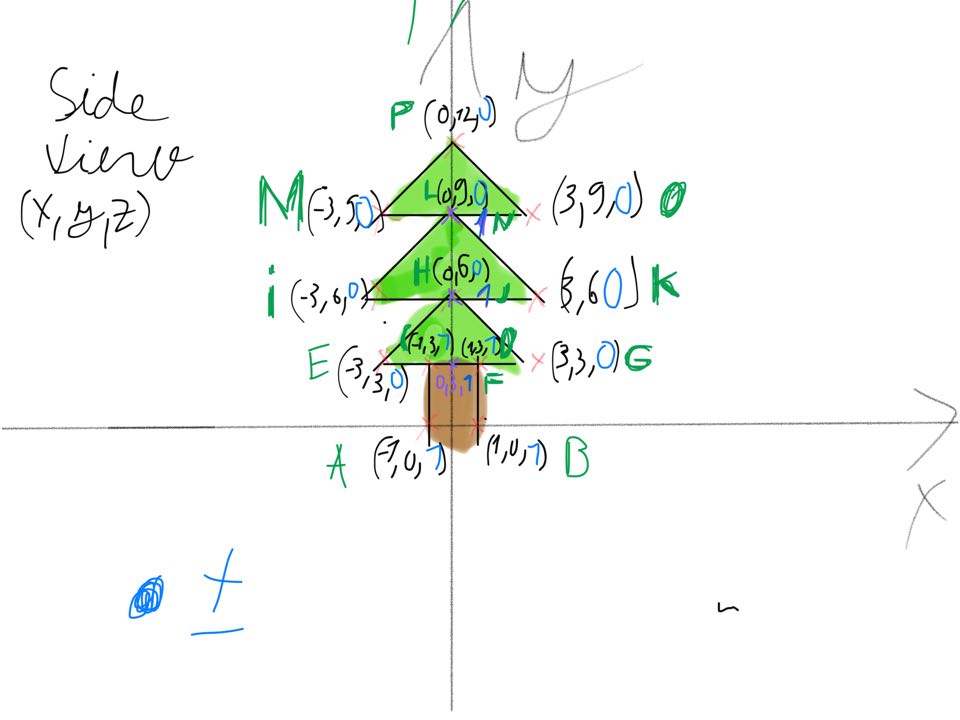 y
Side
View
(x, y, z)
P (0,12,0)
M (-3,9,0) L (0,9,0) 1 N (3,9,0) O
i (-3,6,0) H (0,6,0) 1 J (3,6 0) K
(-1,3,1) (1,3,1) D
E (-3,3,0) 0,3,1 F (3,3,0) G
A (-1,0,1) (1,0,1) B
x
±